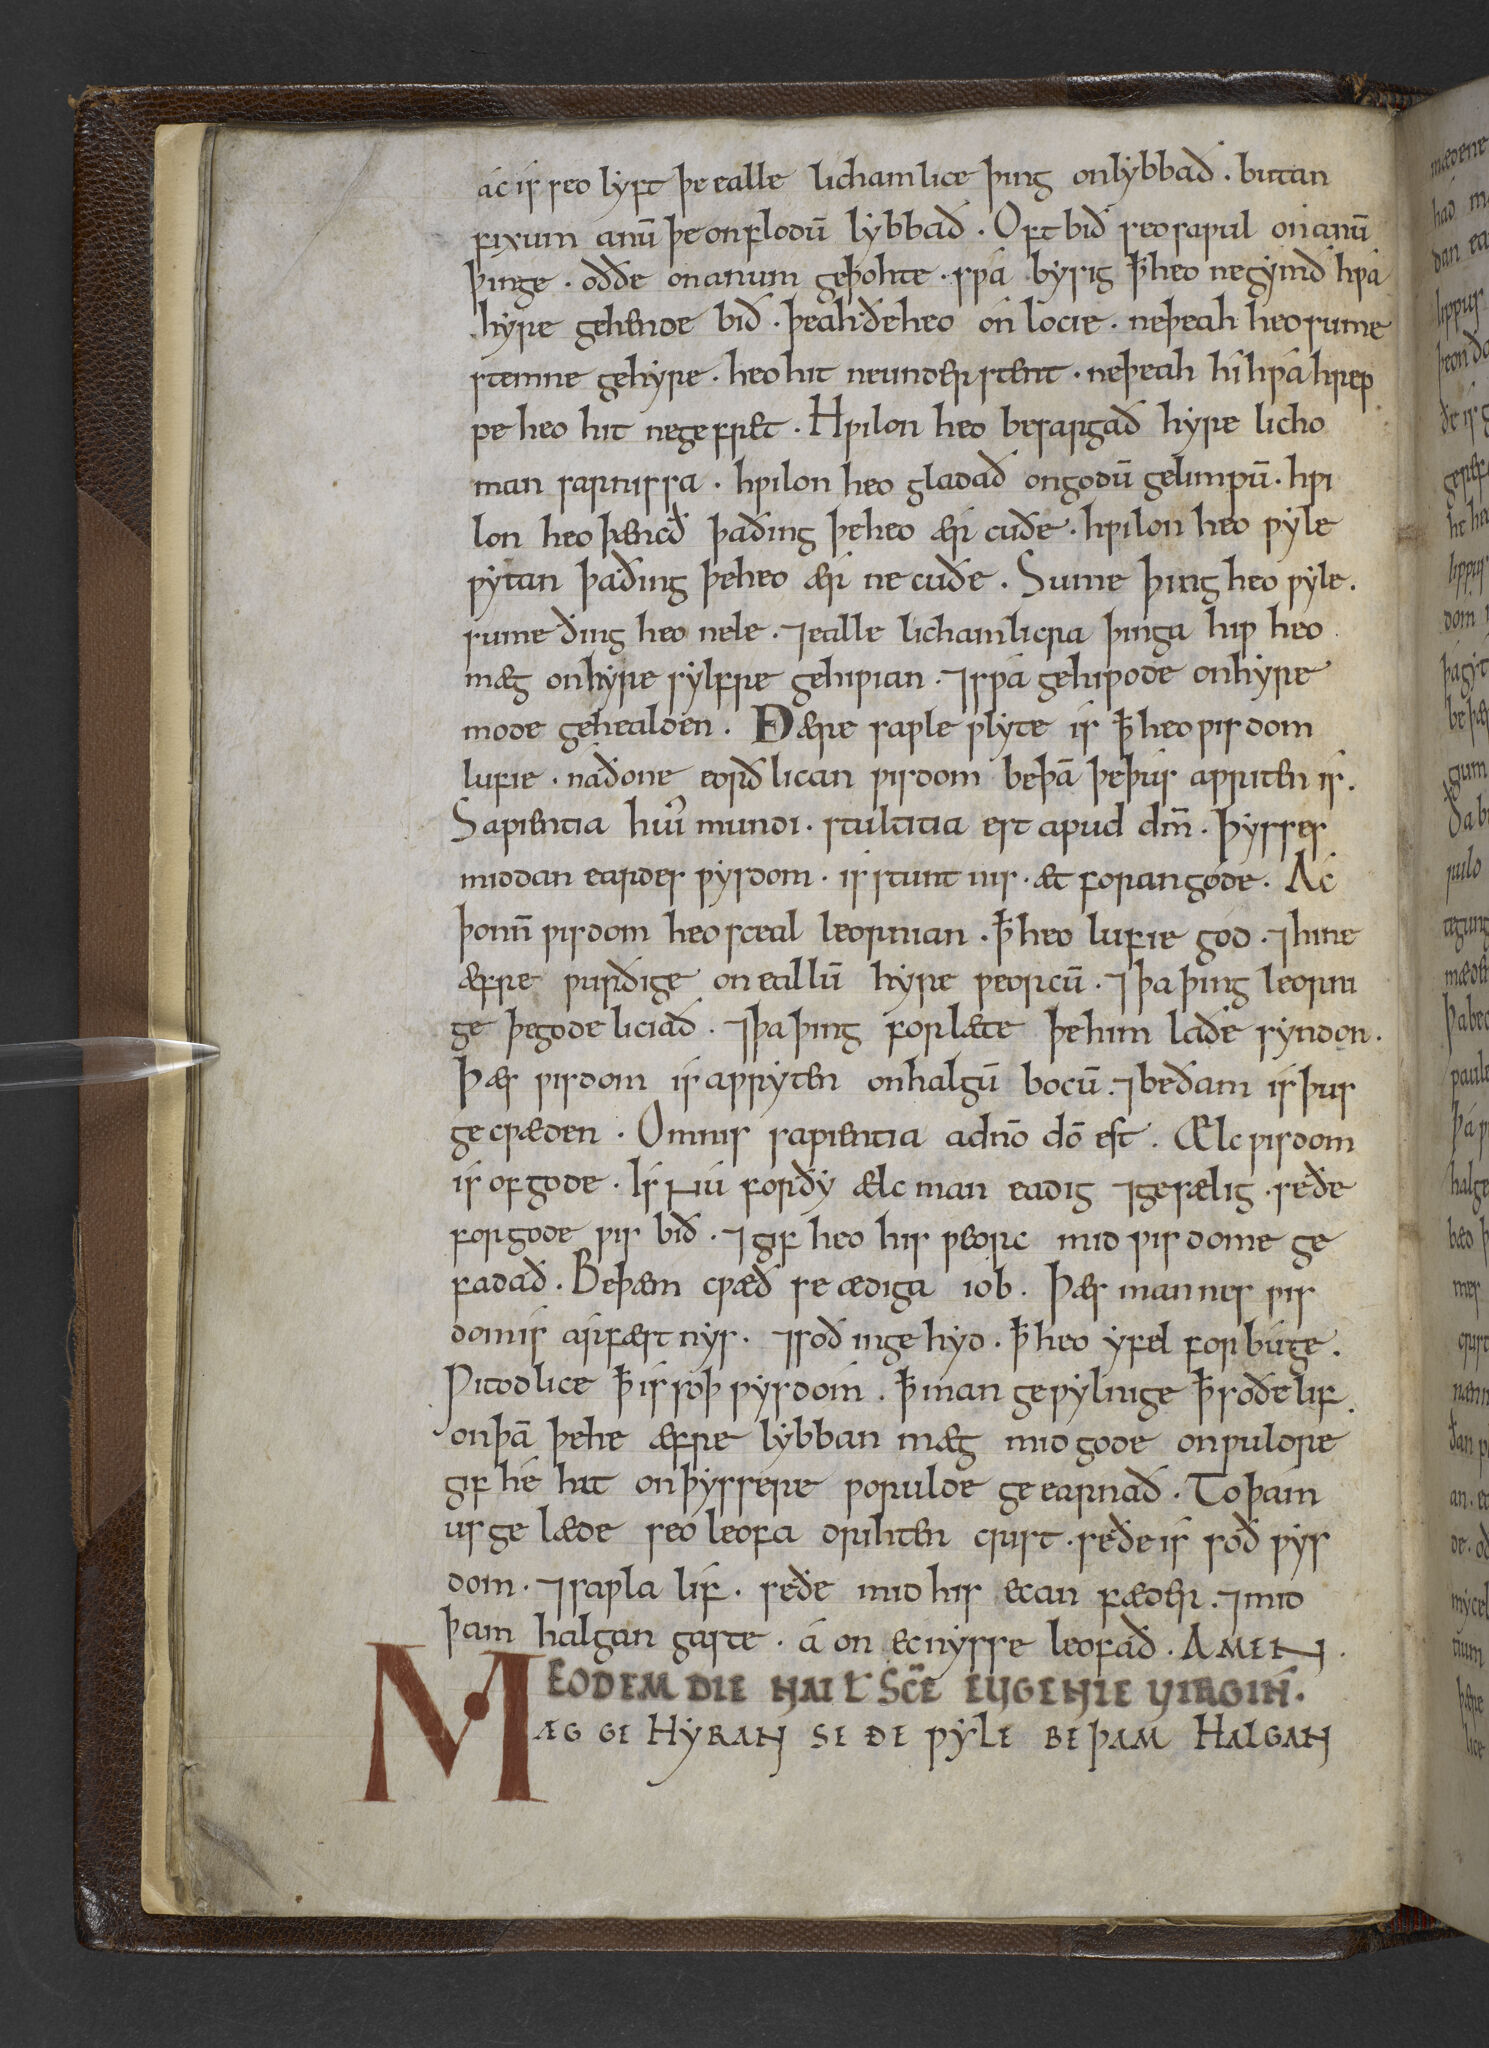 ac is seo lyft þe ealle lichamlice þing onlybbað . butan
fixum anū þe onflodū lybbað . Oft bið seo sapul on anū
þinge . oððe onanum geþohte . spa bysig ꝥ heo negymð hpa
hyre gehende bið . þeah ðe heo on locie . neþeah heo sume
stemne gehyre . heo hit neunderstent . neþeah hi hpa hrep
pe heo hit negefret . Hpilon heo besargað hyre licho
man sarnissa . hpilon heo gladað ongodū gelimpū . hpi
lon heo þæncð þa ðing þe heo ær cuðe . hpilon heo pyle
pytan þa ðing þe heo ær ne cuðe . Sume þing heo pyle .
sume ðing heo nele . ⁊ ealle lichamlicra þinga hip heo
mæg onhyre sylfre gehipian . ⁊ spa gehipode onhyre
mode gehealden . Ðære saple plyte is ꝥ heo pisdom
lufie . na ðone eorðlican pisdom be þā þe þus apriten is .
Sapientia huiꝰ mundi . stultitia est apud dm̄ . Þysses
middan eardes pysdom . is stunt nis . æt foran gode . Ac
þonn̄ pisdom heo sceal leornian . ꝥ heo lufie god . ⁊ hine
æfre purðige on eallū hyre peorcū . ⁊ þa þing leorni
ge þe gode liciað . ⁊ þa þing forlæte þe him laðe syndon .
Þæs pisdom is apryten onhalgū bocū . ⁊ beðam is þus
gecpæden . Omnis sapientia a dn̄o dō est . Ælc pisdom
is of gode . Is nu forðy ælc man eadig ⁊ gesælig . se ðe
for gode pis bið . ⁊ gif heo his peorc mid pisdome ge
fadað . Be þæm cpæð se ædiga iob . Þæs mannes pis
domis arfæst nys . ⁊ soð ingehyd . ꝥ heo yfel forbuge .
Pitodlice ꝥ is soþ pysdom . ꝥ man gepylnige ꝥ soðe lif .
onþā þe he æfre lybban mæg mid gode onpuldre
gif he hit on þyssere porulde geearnað . To þam
us gelæde seo leofa drihten crist . se ðe is soð pys
dom . ⁊ sapla lif . se ðe mid his ecan fæder . ⁊ mid
þam halgan gaste . a on ecnysse leofað . AMEN .
EODEM DIE NAIŁ SC̄E EUGENIE UIRGIN .
MÆG GEHYRAN SE ÐE PYLE BE ÞAM HALGAN